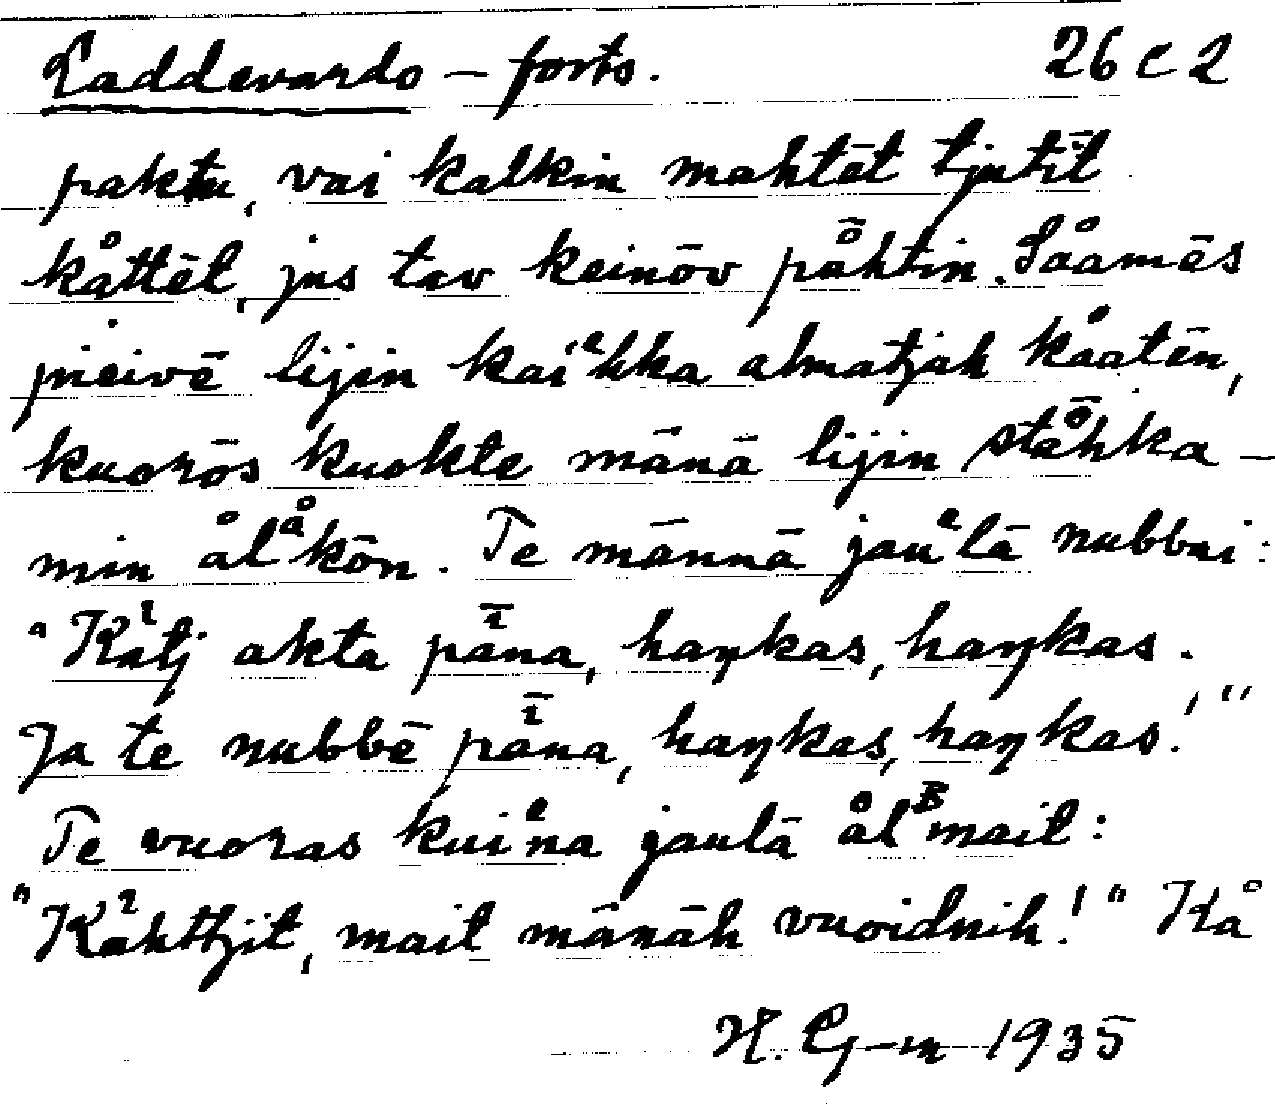 Laddevardo – forts. 26 c 2
paktu, vai kalkin mahtēt tjutīt
kåttēt, jus tav keinōv på̄htin. Såamēs
pieivē lijin kaiᵉhka almatjah kåatēn,
kuorōs kuokte mānā lijin stå̄hka-
min ålåkōn. Te mānnā jauᵉlā nubbui:
"Kaⁱtj akta pāⁱna, haŋkas, haŋkas.
Ja te nubbē pāⁱna, haŋkas, haŋkas!"
Te vuoras kuiᵉna jaulā ålᴮmait:
"Käⁱhttjit, mait mānāh vuoidnih!" Kå
H. G–m 1935